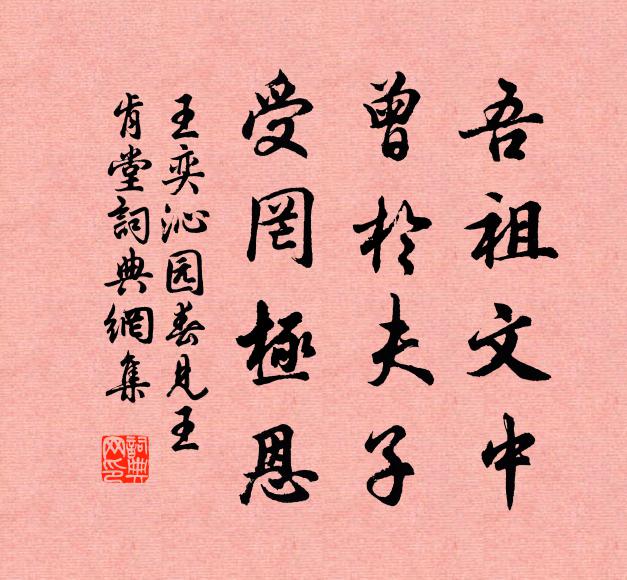 吾祖文中
曾於夫子
受罔極恩
王奕沁园春见王
肯堂詞典網集
詞典网印